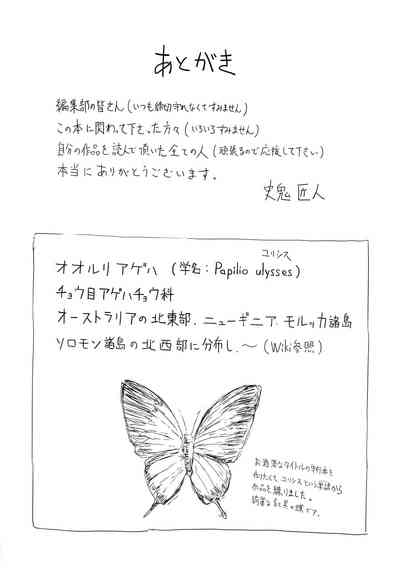 あとがき
編集部の皆さん(いつも締切守れなくてすみません)
この本に関わって下さった方々(いろいろすみません)
自分の作品を読んで頂いた全ての人(頑張るので応援して下さい)
本当にありがとうございます。
史鬼匠人
ユリシス
オオルリアゲハ (学名:Papilio ulysses)
チョウ目アゲハチョウ科
オーストラリアの北東部、ニューギニア、モルッカ諸島
ソロモン諸島の北西部に分布し、～(Wiki参照)
お洒落なタイトルの単行本を
作りたくて、ユリシスという単語から
作品を練りました。
綺麗な
の蝶です。